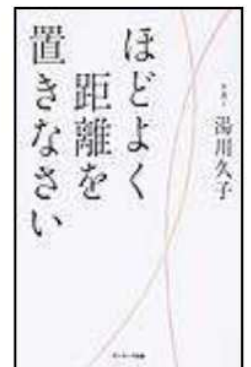 ほどよく
距離を
置きなさい
湯川久子